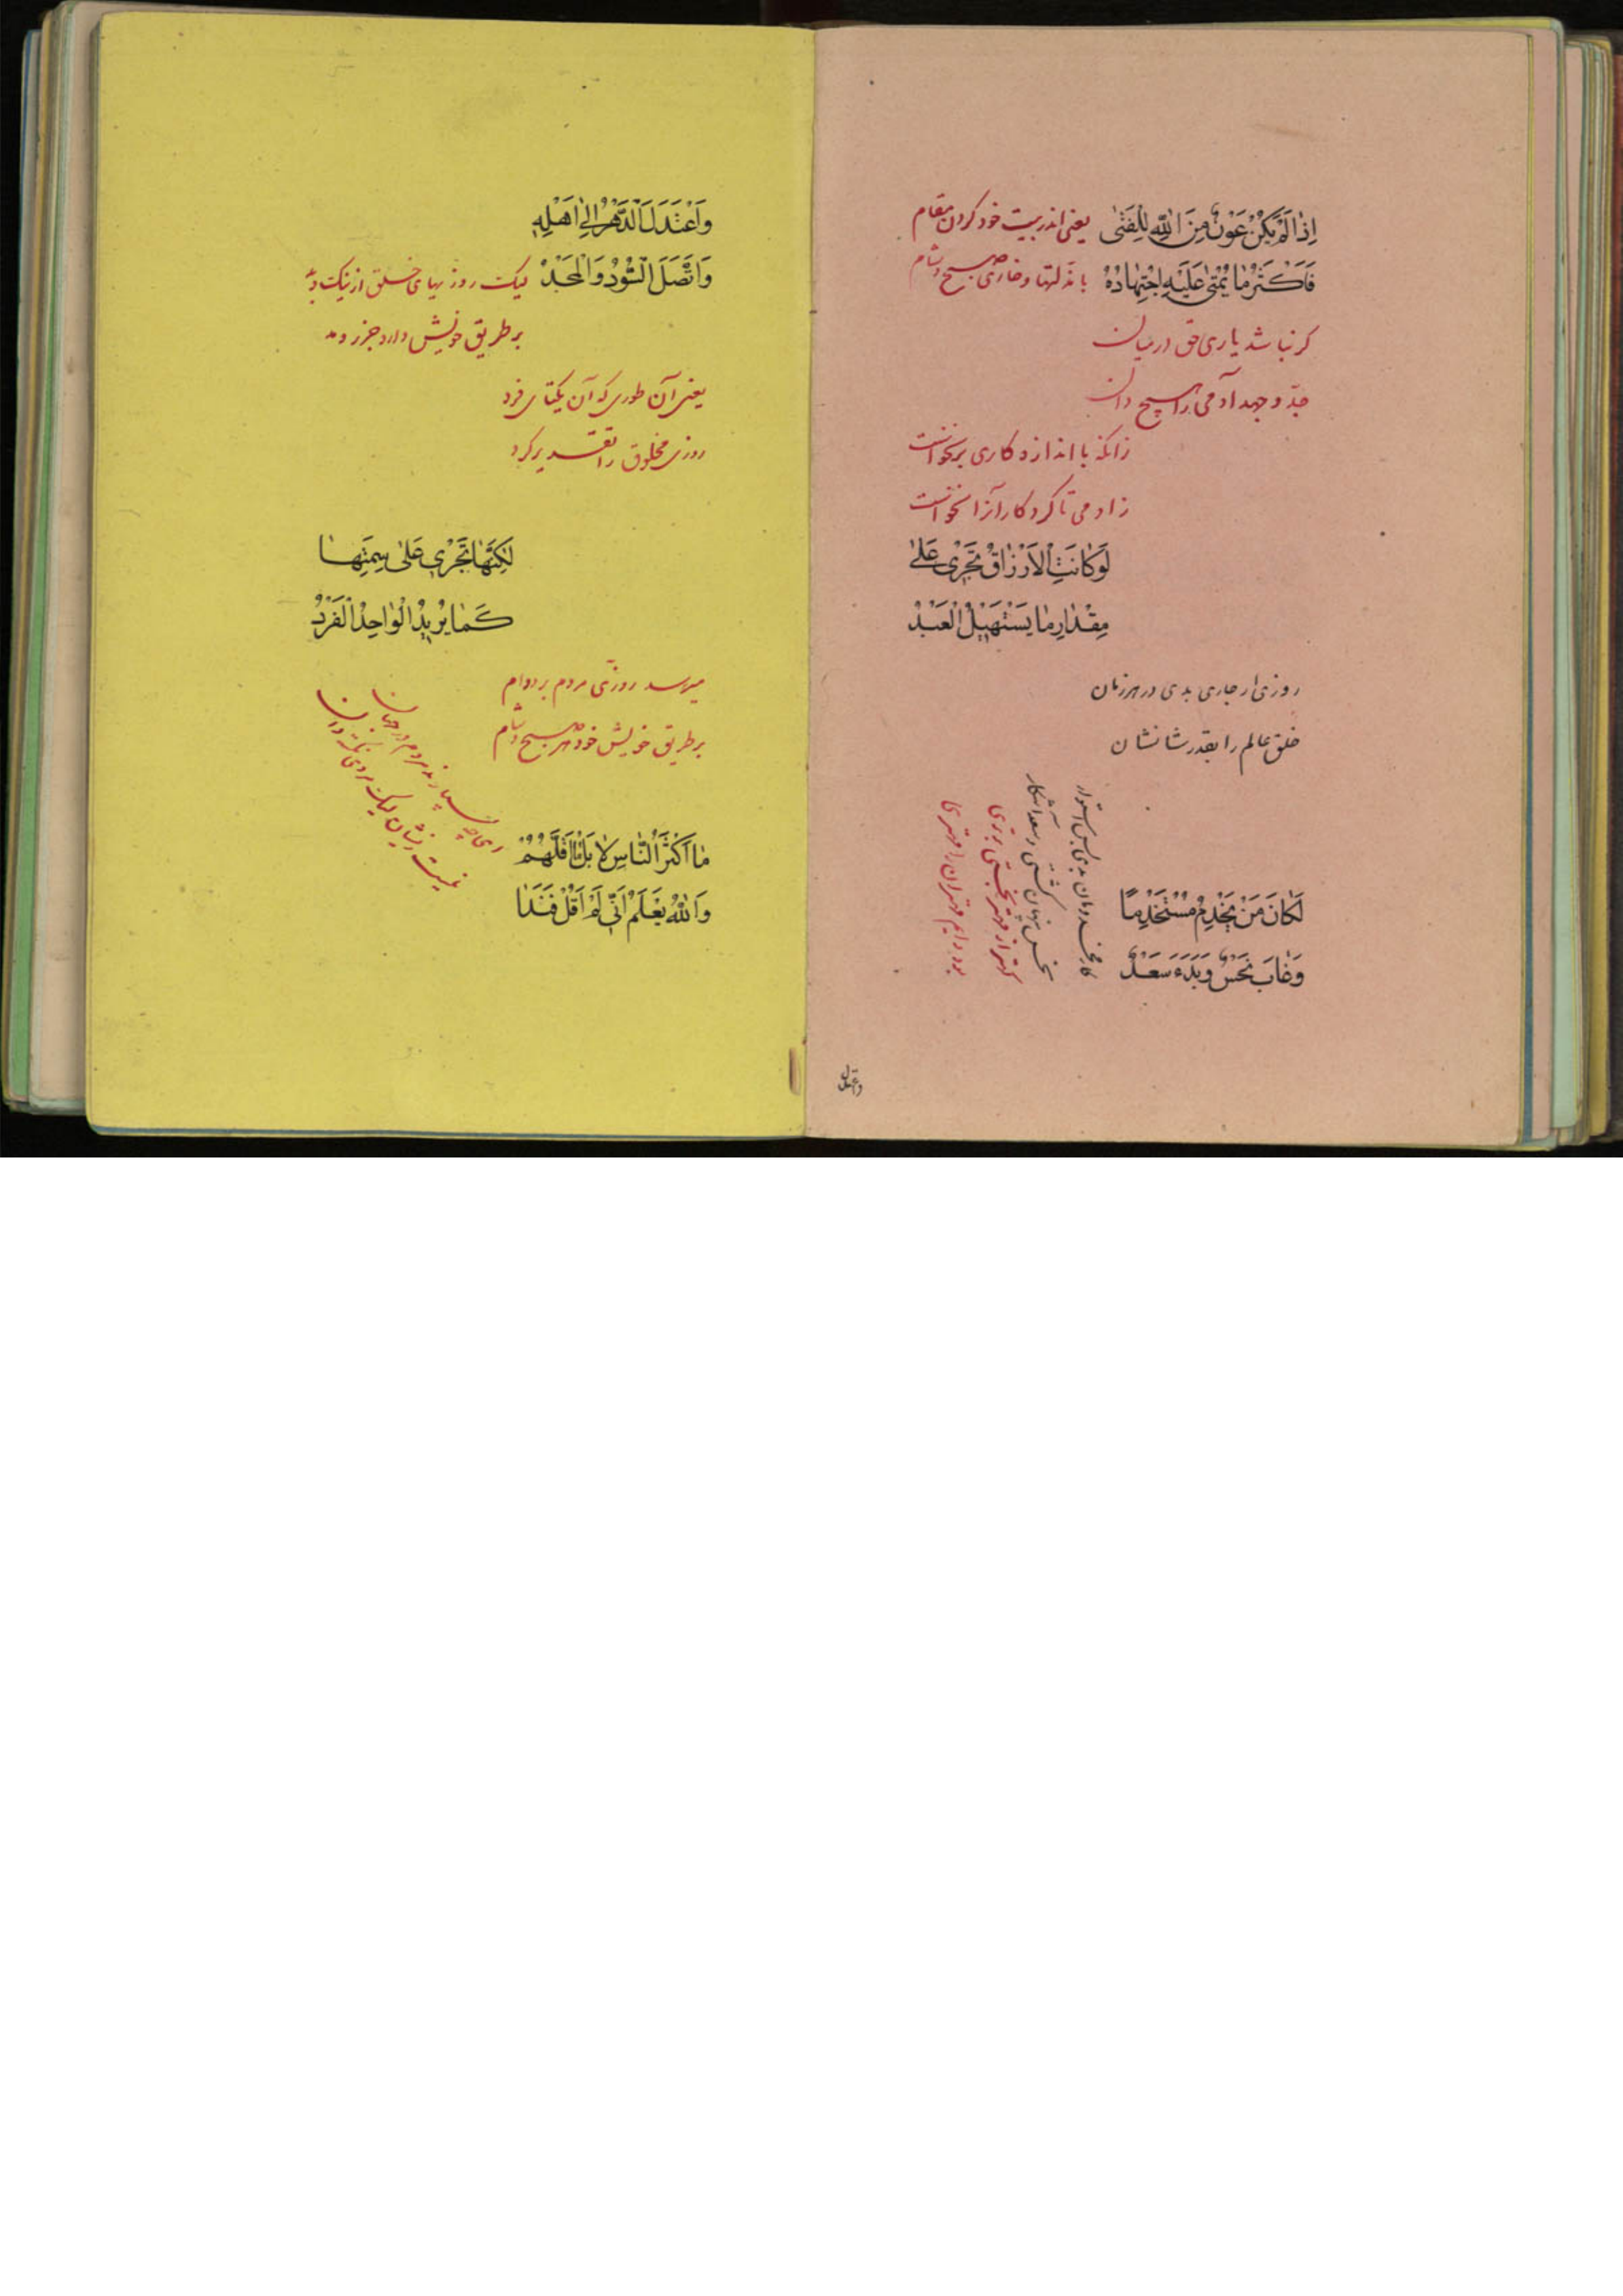 اِذٰا لَمْ يَكُنْ عَوْنٌ مِنَ اللّٰهِ لِلْفَتٰى
يعنى اندر بيت خود كردن مقام
فَاَكْثَرُ مٰا يَجْنٖى عَلَيْهِ اِجْتِهٰادُهُ
با مذلتها و خارى صبح و شام
كر نباشد يارى حق در ميان
جد و جهد آدمى را هيچ دان
زانكه با اندازه كارى بر نخواست
زادمى تا كردكار آنرا نخواست
لَوْ كٰانَتِ الْاَرْزٰاقُ تَجْرٖى عَلىٰ
مِقْدٰارِ مٰا يَسْتَهِيلُ الْعَبْدُ
روزى ار جارى بدى در هر زمان
خلق عالم را بقدر شانشان
لَكٰانَ مَنْ يَخْدِمُ مُسْتَخْدِمًا
وَغٰابَ نَحْسٌ وَبَدَءَ سَعْدٌ
كار مخدومان بدى بس استوار
نحس پنهان كشتى و سعد آشكار
كهتر از مهتر نجستى برترى
بود دايم مهتران را مهترى
واعتدل
وَاعْتَدَلَ الدَّهْرُ اِلىٰ اَهْلِهٖ
وَاتَّصَلَ السُّوْدُدُ وَالْمَجْدُ
ليك روزيهاى خلق از نيك و بد
بر طريق خويش دارد جزر و مد
يعنى آن طورى كه آن يكتاى فرد
روزى مخلوق را تقدير كرد
لٰكِنَّهٰا تَجْرٖى عَلىٰ سِمَتِهٰا
كَمٰا يُرٖيدُ الْوٰاحِدُ الْفَرْدُ
ميرسد روزى مردم بر دوام
بر طريق خويش خود هر صبح و شام
مٰا اَكْثَرَ النّٰاسَ لٰا بَلْ مٰا اَقَلَّهُمْ
وَاللّٰهُ يَعْلَمُ اَنّٖى لَمْ اَقُلْ فَنَدًا
اى چه بسيارند مردم در جهان
نيست زيشان ليك مردى نكته دان